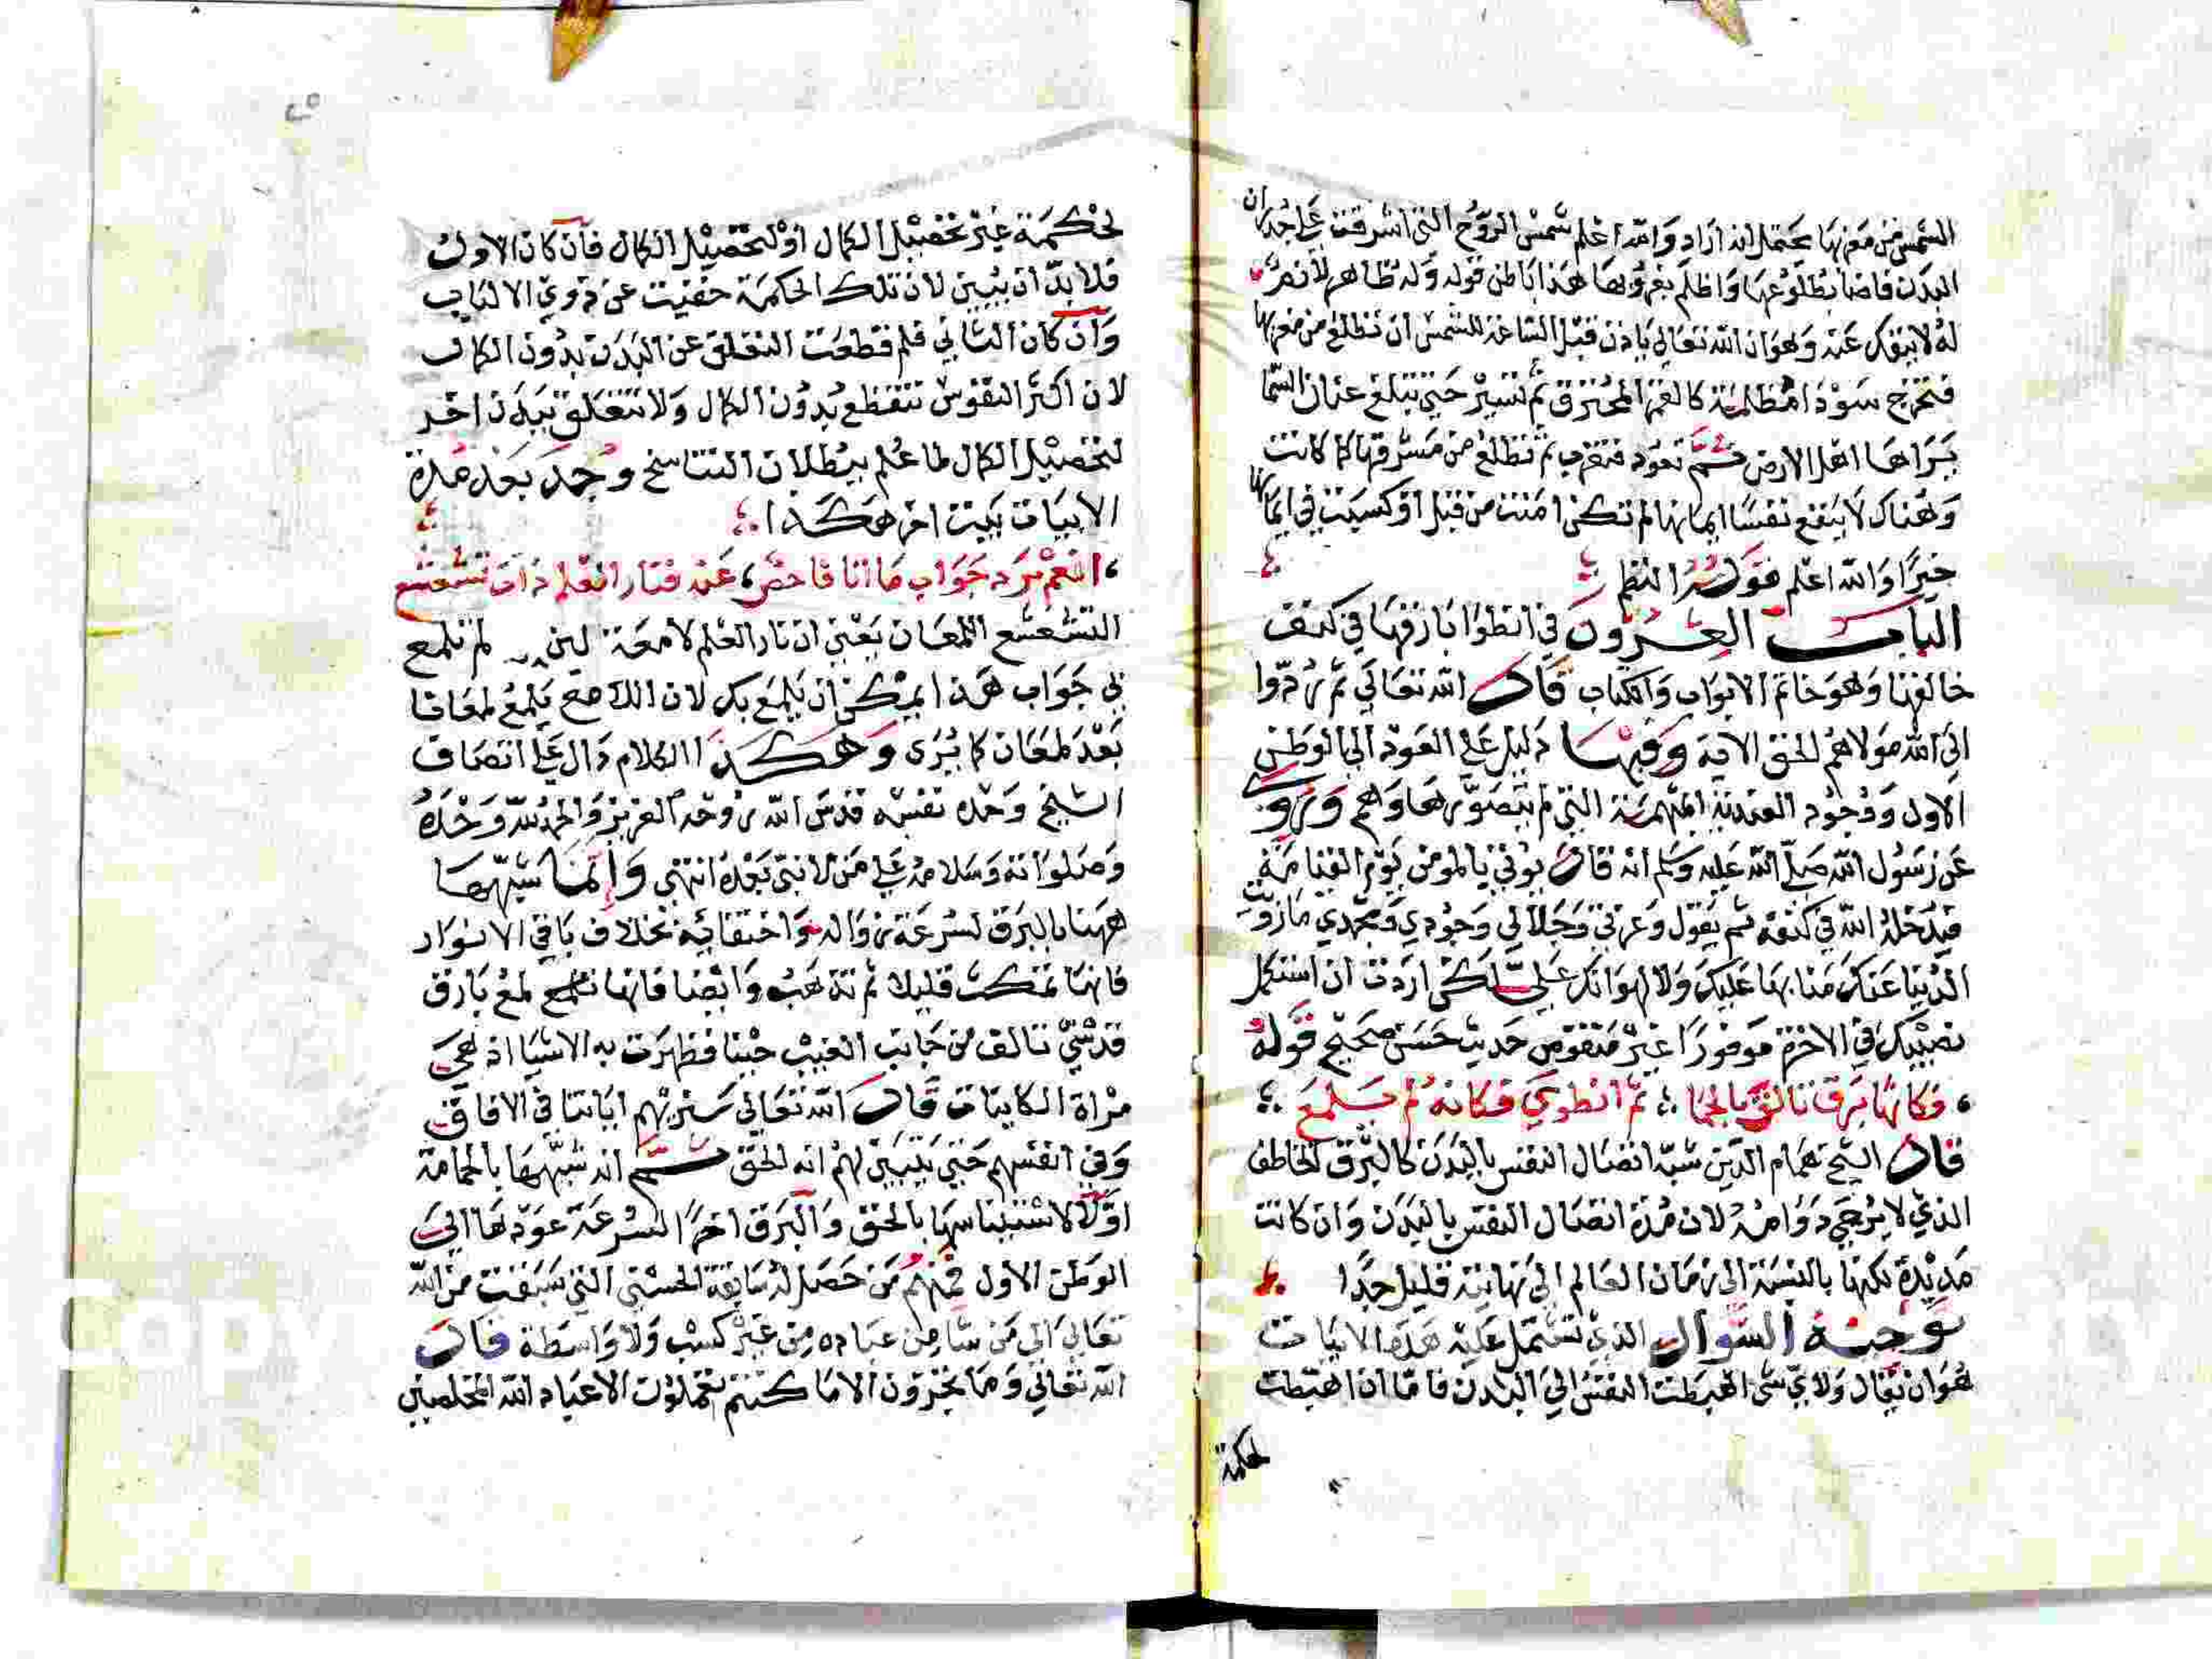 الشمس من مغربها يحتمل انه اراد والله اعلم شمس الروح التي اشرقت على جدران
البدن فاضا بطلوعها واظلم بغروبها هذا باطن قوله وله ظاهر لانه
له لا ينفك عنه وهو ان الله تعالى ياذن قبل الساعة للشمس ان تطلع من مغربها
فتخرج سودا مظلمة كالقمر المحترق ثم تسير حتى تبلغ عنان السما
يراها اهل الارض ثم تعود فتغرب ثم تطلع من مشرقها كما كانت
وهناك لا ينفع نفسا ايمانها لم تكن امنت من قبل او كسبت في ايمانها
خيرا والله اعلم قول النظم
الباب العشرون في انطوا بارقها في كنف
خالقها وهو خاتم الابواب والكتاب قال الله تعالى ثم ردوا
الى الله مولاهم الحق الاية وفيها دليل على العود الى الوطن
الاول ووجود العندية المبهمة التي لم يتصورها وهم وروي
عن رسول الله صلى الله عليه وسلم انه قال يوتى بالمومن يوم القيامة
فيدخله الله في كنفه ثم يقول وعزتي وجلالي وجودي ومجدي ما زويت
الدنيا عنك منا بها عليك ولا لهوانك علي لكن اردت ان استكمل
نصيبك في الاخرة موفورا غير منقوص حديث حسن صحيح قوله
، فكانها برق تالق بالحما ؛ ثم انطوى فكانه لم يلمع ؛
قال الشيخ همام الدين شبه اتصال النفس بالبدن كالبرق الخاطف
الذي لا يرجى دوامه لان مدة اتصال النفس بالبدن وان كانت
مديدة لكنها بالنسبة الى زمان العالم الى نهايته قليل جدا
توجيه السوال الذي تشتمل عليه هذه الابيات
هو ان يقال ولاي شي اهبطت النفس الى البدن فاما ان اهبطت
لحكمة
لحكمة غير تحصيل الكمال او لتحصيل الكمال فان كان الاول
فلا بد ان يبين لان تلك الحكمة خفيت عن ذوي الالباب
وان كان الثاني فلم قطعت التعلق عن البدن بدون الكمال
لان اكثر النفوس تنقطع بدون الكمال ولا تتعلق ببدن اخر
لتحصيل الكمال لما علم ببطلان التناسخ وجد بعد هذه
الابيات بيت اخر هكذا ؛
، انعم برد جواب ما انا فاحص ؛ عنه فنار العلم ذات تشعشع
التشعشع اللمعان يعني ان نار العلم لامعة لم تلمع
في جواب هذا يمكن ان يلمع بك لان اللامع يلمع لمعانا
بعد لمعان كما يرى وهكذا الكلام دال على اتصاف
الشيخ وحده نفسه قدس الله روحه العزيز والحمد لله وحده
وصلواته وسلامه على من لا نبي بعده انتهى وانما شبهها
ههنا بالبرق لسرعة زواله واختفائه بخلاف باقي الانوار
فانها تمكث قليلا ثم تذهب وايضا فانها تلمع لمع بارق
قدسي تالق من جانب الغيب حينا فظهرت به الاشيا اذ هي
مراة الكاينات قال الله تعالى سنريهم اياتنا في الافاق
وفي انفسهم حتى يتبين لهم انه الحق ثم انه شبهها بالحمامة
اولا لاستيناسها بالحق والبرق اخرا لسرعة عودها الى
الوطن الاول فمنهم من حصل له سابقة الحسنى التي سبقت من الله
تعالى الى من شا من عباده من غير كسب ولا واسطة قال
الله تعالى وما تجزون الا ما كنتم تعملون الا عباد الله المخلصين